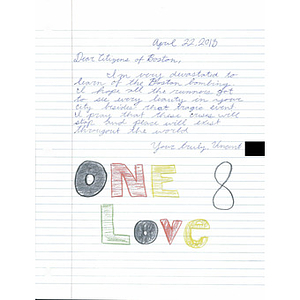 April 22, 2013
Dear Citizens of Boston,
I'm very devastated to
learn of the Boston bombing.
I hope all the runners got
to see every beauty in your
city besides that tragic event.
I pray that these crimes will
stop and peace will exist
throughout the world.
Yours truly, Vincent
ONE 8
Love